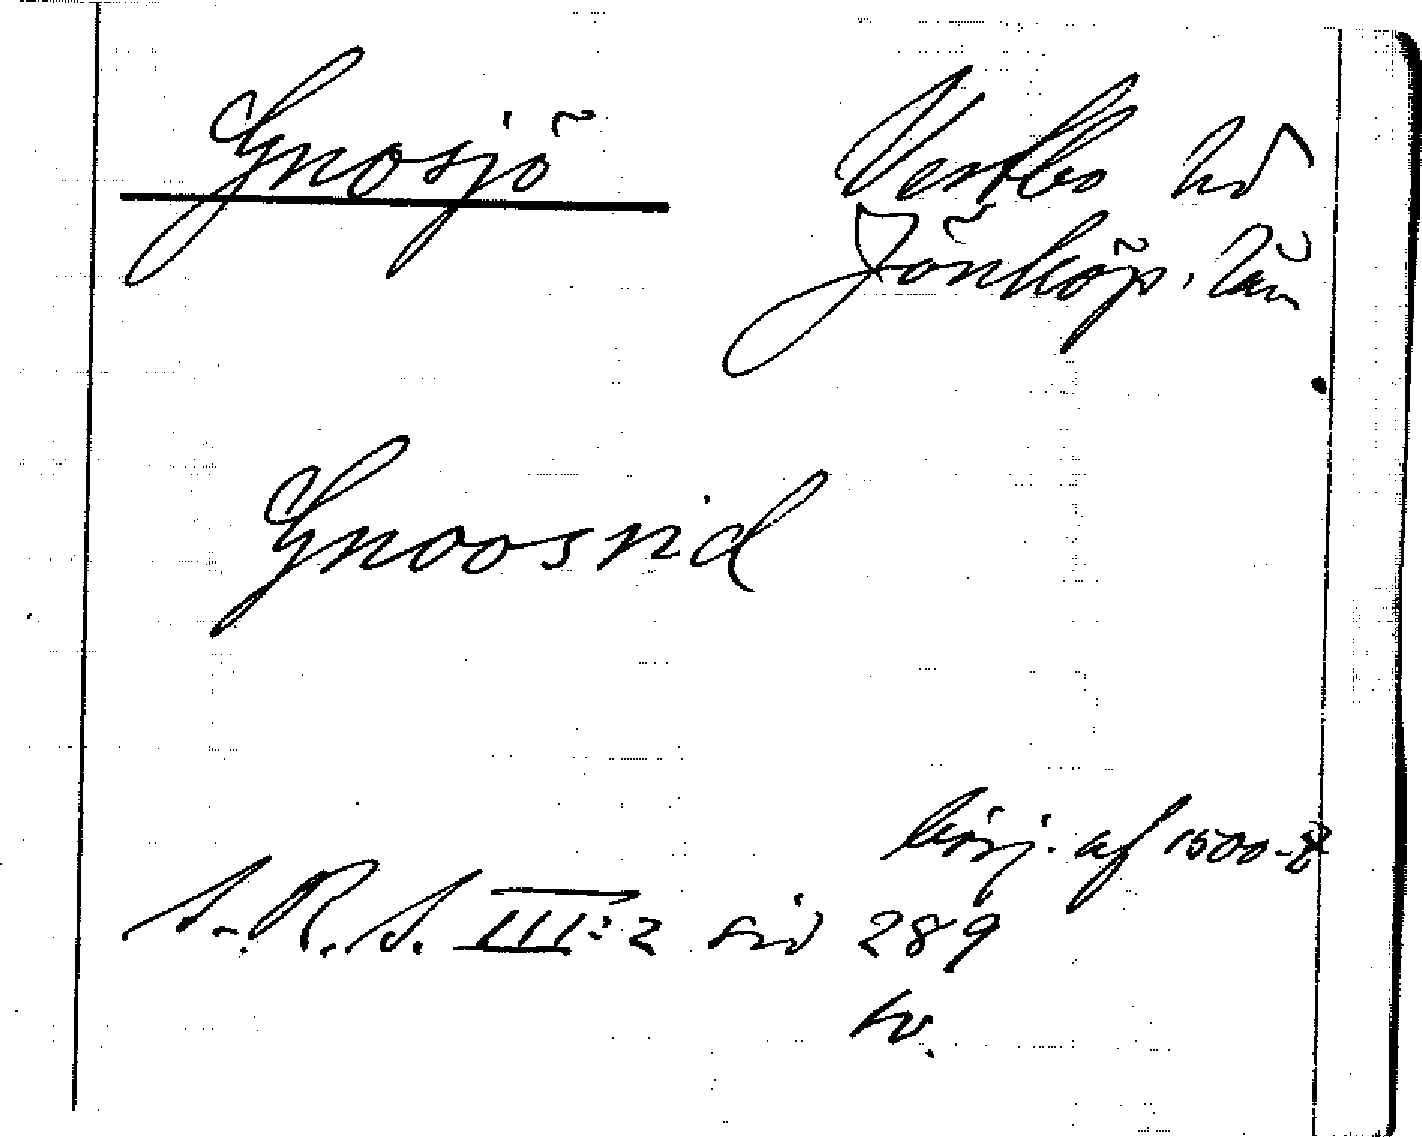 Gnosjö Vestbo hd
Jönköp. län
Gnoosrid
börj. af 1500-t
S. R. S. III:2 sid 289